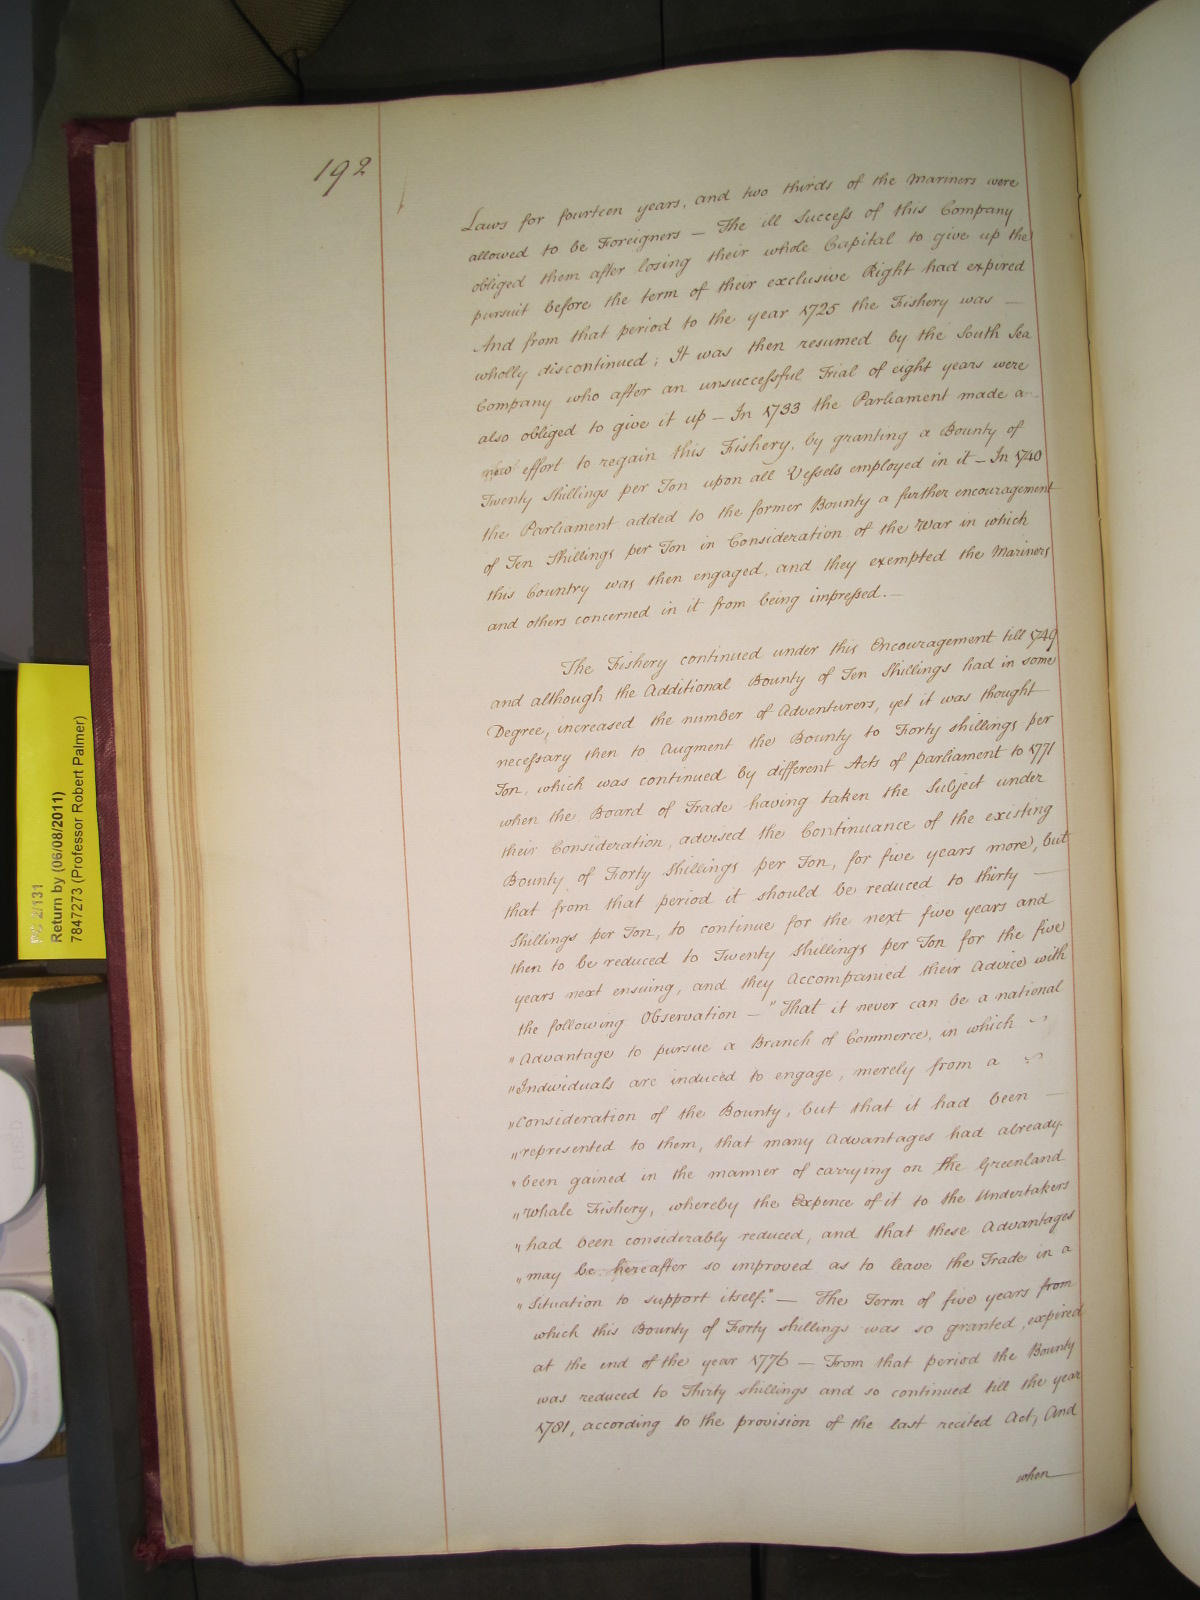 192
Laws for fourteen years, and two thirds of the Mariners were
allowed to be Foreigners — The ill Success of this Company
obliged them after losing their whole Capital to give up the
pursuit before the term of their exclusive Right had expired
And from that period to the year 1725 the Fishery was —
wholly discontinued; It was then resumed by the South Sea
Company who after an unsuccessful Trial of eight years were
also obliged to give it up — In 1733 the Parliament made a
new effort to regain this Fishery, by granting a Bounty of
Twenty Shillings per Ton upon all Vessels employed in it — In 1740
the Parliament added to the former Bounty a further encouragement
of Ten Shillings per Ton in Consideration of the War in which
this Country was then engaged, and they exempted the Mariners
and others concerned in it from being impressed. —
The Fishery continued under this Encouragement till 1749
and although the Additional Bounty of Ten Shillings had in some
Degree, increased the number of Adventurers, yet it was thought
necessary then to Augment the Bounty to Forty shillings per
Ton, which was continued by different Acts of parliament to 1771
when the Board of Trade having taken the Subject under
their Consideration, advised the Continuance of the existing
Bounty of Forty Shillings per Ton, for five years more, but
that from that period it should be reduced to thirty —
Shillings per Ton, to continue for the next five years and
then to be reduced to Twenty Shillings per Ton for the five
years next ensuing, and they Accompanied their Advice with
the following Observation — "That it never can be a national
"Advantage to pursue a Branch of Commerce, in which
"Individuals are induced to engage, merely from a
"Consideration of the Bounty, but that it had been —
"represented to them, that many Advantages had already
"been gained in the manner of carrying on the Greenland
"Whale Fishery, whereby the Expence of it to the Undertakers
"had been considerably reduced, and that these Advantages
"may be hereafter so improved as to leave the Trade in a
"Situation to support itself." — The Term of five years from
which this Bounty of Forty shillings was so granted, expired
at the end of the year 1776 — From that period the Bounty
was reduced to Thirty shillings and so continued till the year
1781, according to the provision of the last recited Act, And
when —
PC 2/131
Return by (06/08/2011)
7847273 (Professor Robert Palmer)